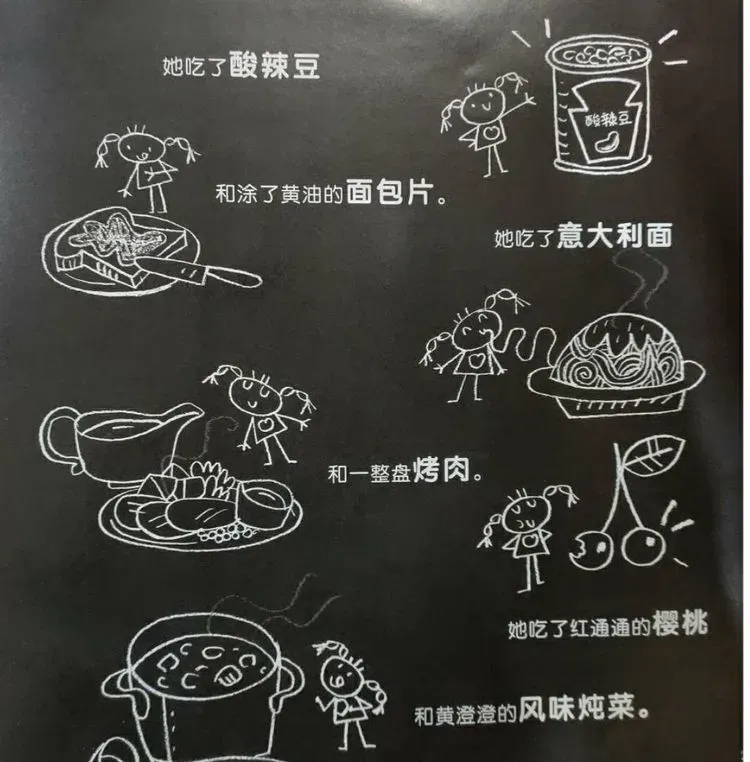 她吃了酸辣豆
酸辣豆
和涂了黄油的面包片。
她吃了意大利面
和一整盘烤肉。
她吃了红通通的樱桃
和黄澄澄的风味炖菜。